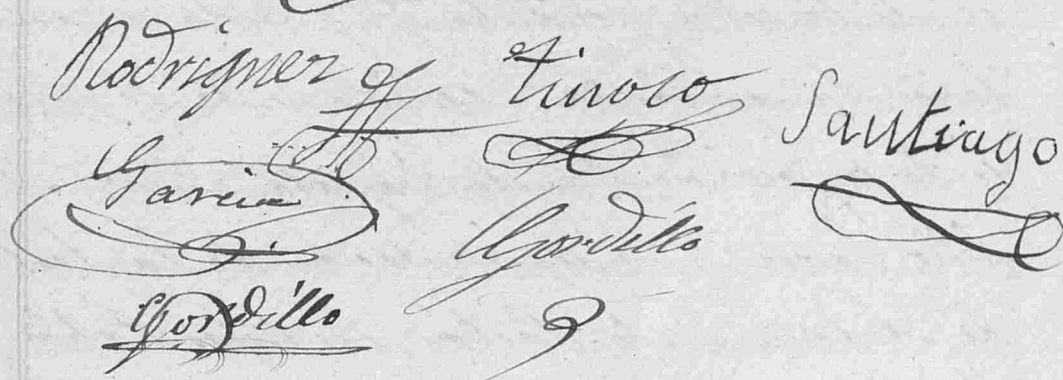 Rodriguez Tinoco Santiago
Garcia Gordillo
Gordillo